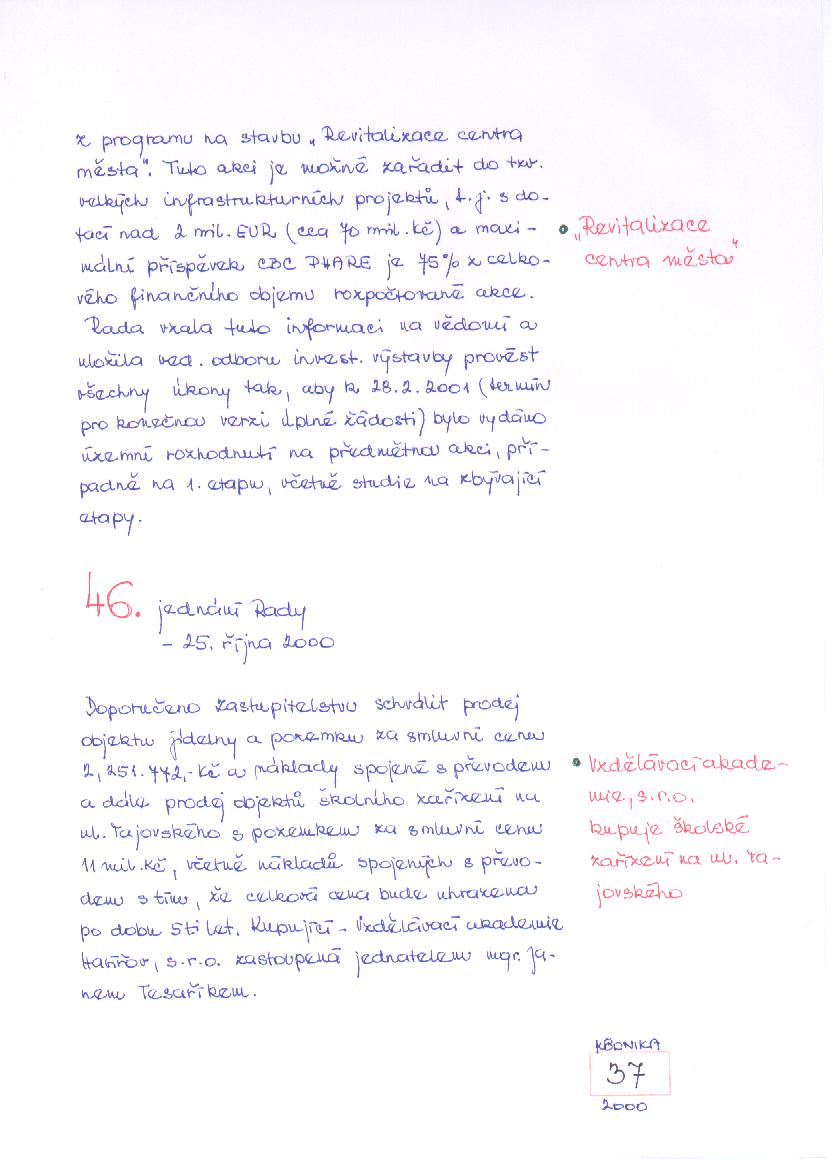 z programu na stavbu „Revitalizace centra
města". Tuto akci je možné zařadit do tzv.
velkých infrastrukturních projektů, t.j. s do-
tací nad 2 mil. EUR (cca 70 mil. Kč) a maxi-
mální příspěvek CBC PHARE je 75% z celko-
vého finančního objemu rozpočtované akce.
Rada vzala tuto informaci na vědomí a
uložila ved. odboru invest. výstavby provést
všechny úkony tak, aby k 28.2.2001 (termín
pro konečnou verzi úplné žádosti) bylo vydáno
územní rozhodnutí na předmětnou akci, pří-
padně na 1. etapu, včetně studie na zbývající
etapy.
„Revitalizace
centra města"
46. jednání Rady
– 25. října 2000
Doporučeno zastupitelstvu schválit prodej
objektu jídelny a pozemku za smluvní cenu
2,251.772,- Kč a náklady spojené s převodem
a dále prodej objektů školního zařízení na
ul. Tajovského s pozemkem za smluvní cenu
11 mil. Kč, včetně nákladů spojených s převo-
dem s tím, že celková cena bude uhrazena
po dobu 5ti let. Kupující - Vzdělávací akademie
Havířov, s.r.o. zastoupená jednatelem mgr. Ja-
nem Tesaříkem.
Vzdělávací akade-
mie, s.r.o.
kupuje školské
zařízení na ul. Ta-
jovského
KRONIKA
37
2000